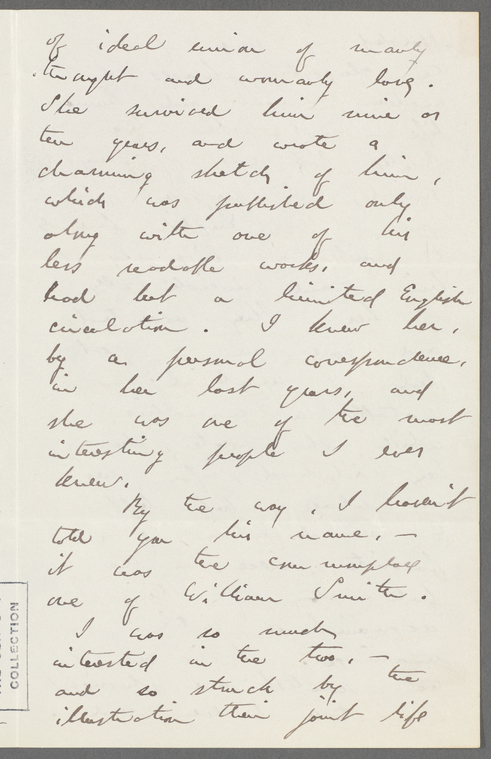 of ideal union of manly
thought and womanly love.
She survived him nine or
ten years, and wrote a
charming sketch of him,
which was published only
along with one of his
less readable works, and
had but a limited English
circulation. I knew her,
by a personal correspondence,
in her last years, and
she was one of the most
interesting people I ever
knew.
By the way, I haven't
told you his name, —
it was the commonplace
one of William Smith.
I was so much
interested in the two, —
and so struck by the
illustration their joint life
COLLECTION